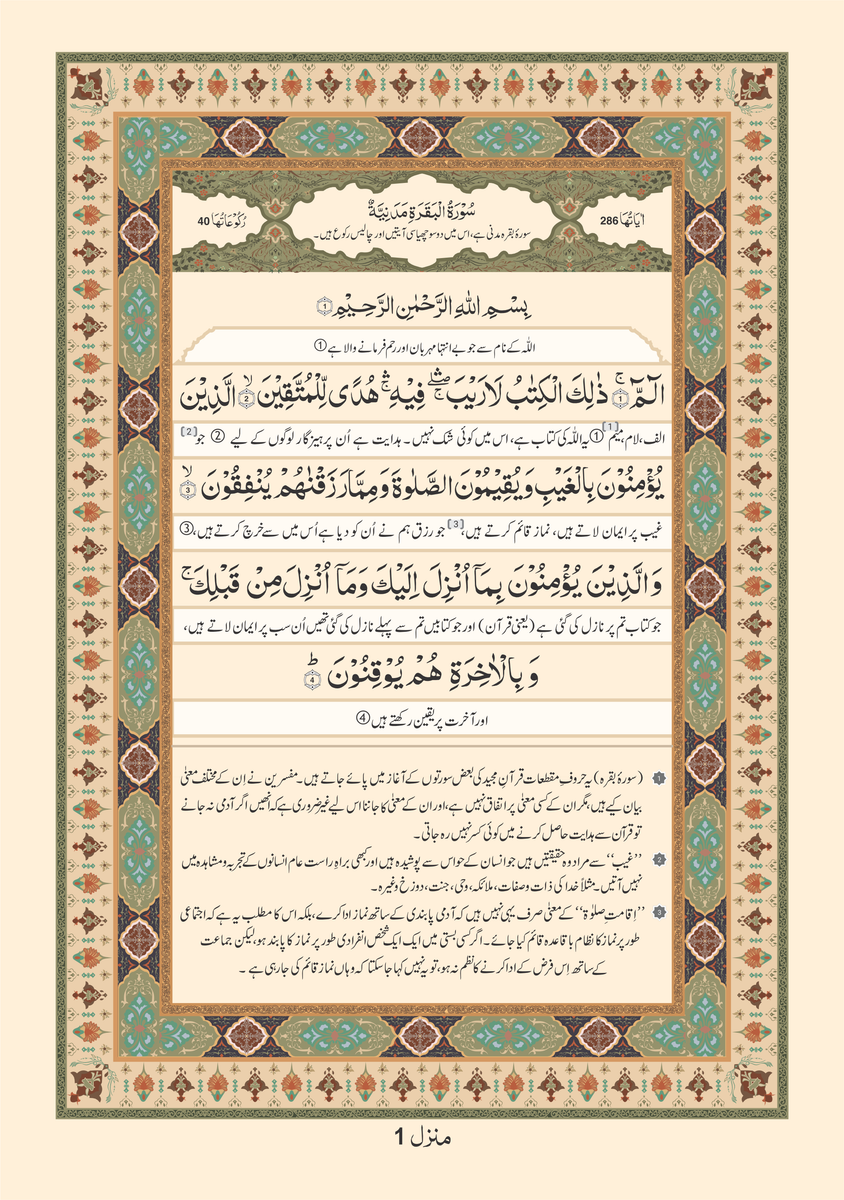 اٰیَاتُهَا 286
سُوْرَةُ الْبَقَرَةِ مَدَنِیَّةٌ
رُكُوْعَاتُهَا 40
سورۂ بقرہ مدنی ہے، اس میں دو سو چھیاسی آیتیں اور چالیس رکوع ہیں۔
بِسْمِ اللّٰهِ الرَّحْمٰنِ الرَّحِیْمِ ۝1
اللہ کے نام سے جو بے انتہا مہربان اور رحم فرمانے والا ہے ①
الٓمّٓ ۝1ۚ ذٰلِكَ الْكِتٰبُ لَا رَیْبَ ۛۖۚ فِیْهِ ۛۚ هُدًی لِّلْمُتَّقِیْنَ ۝2ۙ الَّذِیْنَ
الف، لام، میم [1] ① یہ اللہ کی کتاب ہے، اس میں کوئی شک نہیں۔ ہدایت ہے اُن پرہیزگار لوگوں کے لیے ② جو [2]
یُؤْمِنُوْنَ بِالْغَیْبِ وَ یُقِیْمُوْنَ الصَّلٰوةَ وَ مِمَّا رَزَقْنٰهُمْ یُنْفِقُوْنَ ۝3ۙ
غیب پر ایمان لاتے ہیں، نماز قائم کرتے ہیں، [3] جو رزق ہم نے اُن کو دیا ہے اُس میں سے خرچ کرتے ہیں، ③
وَ الَّذِیْنَ یُؤْمِنُوْنَ بِمَاۤ اُنْزِلَ اِلَیْكَ وَ مَاۤ اُنْزِلَ مِنْ قَبْلِكَ ۚ
جو کتاب تم پر نازل کی گئی ہے (یعنی قرآن) اور جو کتابیں تم سے پہلے نازل کی گئی تھیں اُن سب پر ایمان لاتے ہیں،
وَ بِالْاٰخِرَةِ هُمْ یُوْقِنُوْنَ ۝4ؕ
اور آخرت پر یقین رکھتے ہیں ④
1 (سورۂ بقرہ) یہ حروفِ مقطعات قرآنِ مجید کی بعض سورتوں کے آغاز میں پائے جاتے ہیں۔ مفسرین نے اِن کے مختلف معنی
بیان کیے ہیں، مگر ان کے کسی معنی پر اتفاق نہیں ہے، اور ان کے معنی کا جاننا اس لیے غیر ضروری ہے کہ انھیں اگر آدمی نہ جانے
تو قرآن سے ہدایت حاصل کرنے میں کوئی کسر نہیں رہ جاتی۔
2 ’’غیب‘‘ سے مراد وہ حقیقتیں ہیں جو انسان کے حواس سے پوشیدہ ہیں اور کبھی براہِ راست عام انسانوں کے تجربہ و مشاہدہ میں
نہیں آتیں۔ مثلاً خدا کی ذات و صفات، ملائکہ، وحی، جنت، دوزخ وغیرہ۔
3 ’’اِقامتِ صلوٰۃ‘‘ کے معنی صرف یہی نہیں ہیں کہ آدمی پابندی کے ساتھ نماز ادا کرے، بلکہ اس کا مطلب یہ ہے کہ اجتماعی
طور پر نماز کا نظام باقاعدہ قائم کیا جائے۔ اگر کسی بستی میں ایک ایک شخص انفرادی طور پر نماز کا پابند ہو، لیکن جماعت
کے ساتھ اِس فرض کے ادا کرنے کا نظم نہ ہو، تو یہ نہیں کہا جا سکتا کہ وہاں نماز قائم کی جا رہی ہے۔
منزل 1